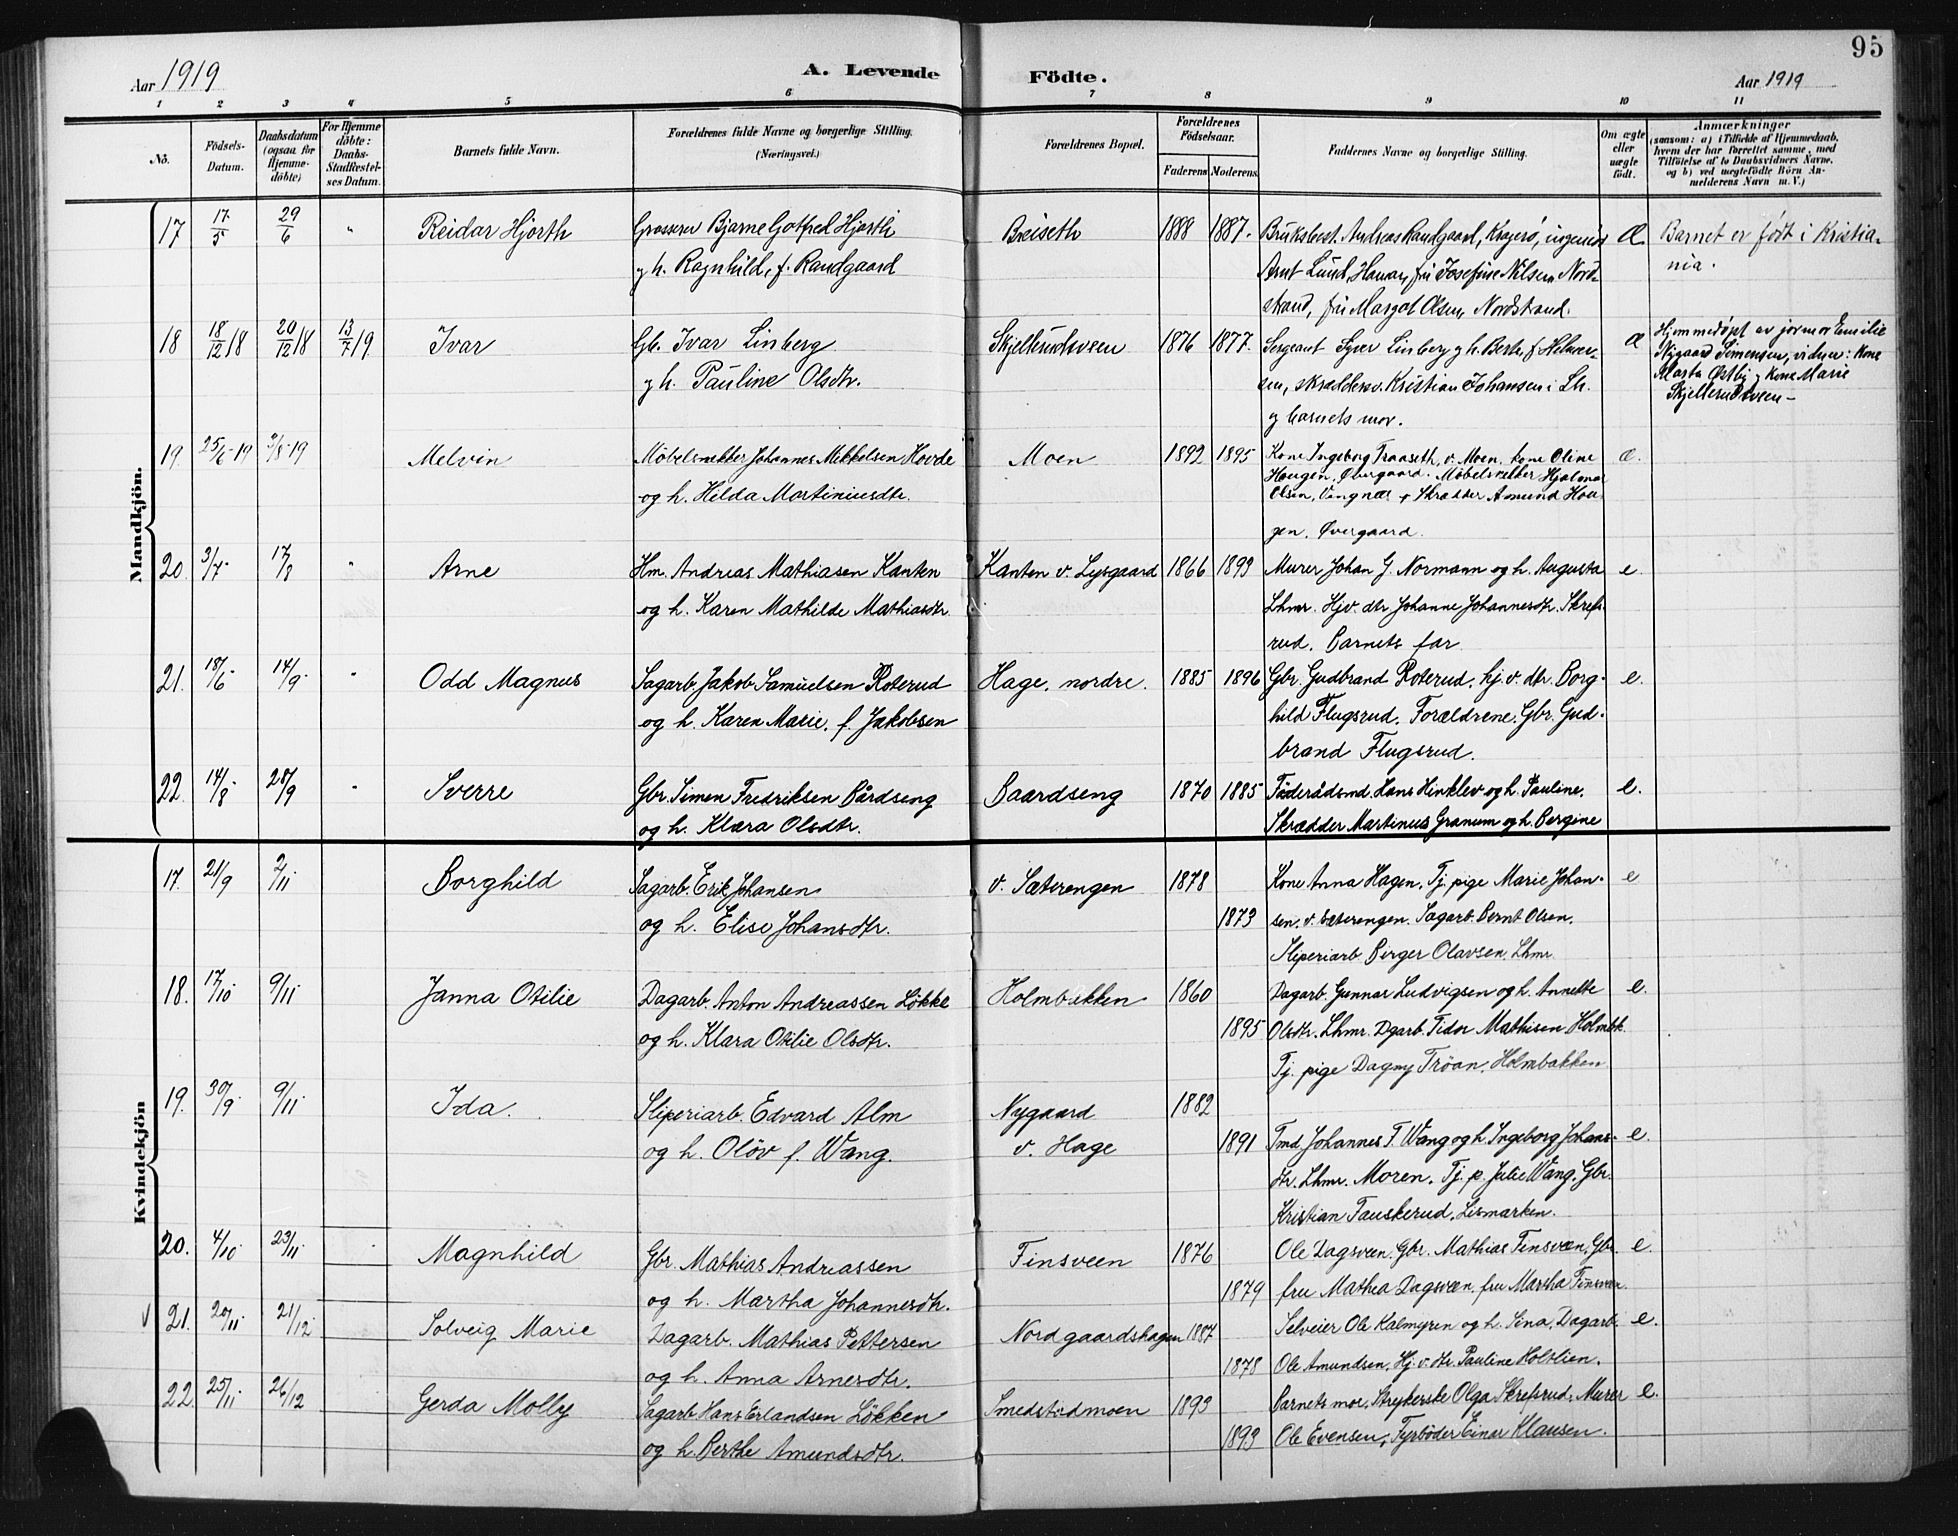 95
Aar 1919
A. Levende Födte.
Aar 1919
1 2 3 4 5 6 7 8 9 10 11
No.
Födsels-Datum.
Daabsdatum (ogsaa for Hjemme-döbte)
For Hjemme döbte: Daabs-Stadfestel-ses Datum.
Barnets fulde Navn.
Forældrenes fulde Navne og borgerlige Stilling.
(Næringsvei.)
Forældrenes Bopæl.
Forældrenes Födselsaar.
Faderens Moderens
Faddernes Navne og borgerlige Stilling.
Om ægte eller uægte födt.
Anmærkninger
(saasom: a) i Tilfælde af Hjemmedaab, hvem der har forrettet samme, med Tilföielse af to Daabsvidners Navne, og b) ved uægtefödte Börn An-melderens Navn m. V.)
Mandkjön.
17 17/5 29/6 " Reidar Hjorth Grosserer Bjarne Gotfred Hjorth Breiseth 1888 1887. Bruksbest. Andreas Randgaard, Kragerø, ingeniør Æ Barnet er født i Kristia-
g h. Ragnhild, f. Randgaard Arnt Lund, Hamar, fru Josefine Nilsen Nord- nia.
strand, fru Margot Olsen, Nordstrand.
18 18/12 18 20/12 18 13/7 19 Ivar Gb. Ivar Linberg Skjellerudsveen 1876 1877. Sergeant Syver Linberg g h. Berte, f. Helmer- æ Hjemmedøpt av jormor Emilie
g h. Pauline Olsdtr. sen, skræddersv. Kristian Johansen i Lh. Nygaard Simensen, vidner: kone
g barnets mor. Marta Østby g kone Marie
Skjellerudsveen –
19. 25/6-19 3/8-19 Melvin Møbelsnekker Johannes Mikkelsen Hovde Moen 1892 1895 Kone Ingeborg Traaseth, v. Moen, kone Oline æ.
og h. Hilda Martiniusdtr. Haugen, Øvergaard. Møbelsnekker Hjalmar
Olsen, Vingnæs + Skrædder Amund Hau-
gen, Øvergaard.
20. 3/7- 17/8 " Arne Hm. Andreas Mathiasen Kanten Kanten v. Lysgaard 1866 1899 Murer Johan G. Normann og h. Augusta e
og h. Karen Mathilde Mathiasdtr. Lhmr. Hjv. dtr Johanne Johannesdtr. Skrefs-
rud. Barnets far
21. 18/6- 14/9- " Odd Magnus Sagarb. Jakob Samuelsen Roterud Hage, nordre. 1885 1896 Gbr. Gudbrand Roterud, hj. v. dtr. Borg- e.
og h. Karen Marie, f. Jakobsen hild Flugsrud. Forældrene. Gbr. Gud-
brand Flugsrud.
22. 14/8- 28/9 " Sverre Gbr. Simen Fredriksen Bårdseng Baardseng 1870 1885 Føderådsmd. Hans Hinklev og h. Pauline, e.
og h. Klara Olsdtr. Skrædder Martinus Granum og h. Bergine
Kvindekjön
17. 21/9 2/11 Borghild Sagarb. Erik Johansen v. Sæterengen 1878 Kone Anna Hagen, Tj. pige Marie Johan- e
og h. Elise Johansdtr. 1873 sen v. Sæterengen. Sagarb. Bernt Olsen,
Sliperiarb. Birger Olavsen, Lhmr.
18. 17/10 9/11 Janna Otilie Dagarb. Anton Andreassen Løkke Holmbakken 1860 Dagarb. Gunnar Ludvigsen og h. Annette e.
og h. Klara Otilie Olsdtr. 1895 Olsdtr. Lhmr. Dgarb. Tidor Mathisen Holmbk.
Tj. pige Dagny Trøan, Holmbakken
19. 30/9 9/11 Ida. Sliperiarb. Edvard Alm Nygaard 1882
og h. Oløv f. Wang. v. Hage 1891 Tmd. Johannes T. Wang og h. Ingeborg Johans- e.
dtr. Lhmr. Moren. Tj. p. Julie Wang, Gbr.
Kristian Tauskerud, Lismarken.
20. 4/10 23/11 Magnhild Gbr. Mathias Andreassen Finsveen 1876 Ole Dagsveen, Gbr. Mathias Finsveen, Gbr. e.
og h. Martha Johannesdtr. 1879 fru Mathea Dagsveen, fru Martha Finsveen
V 21. 20/11 21/12 Solveig Marie Dagarb. Mathias Pettersen Nordgaardshagen 1887 Selveier Ole Kalmyren og h. Sina, Dagarb. e.
og h. Anna Arnesdtr. 1878 Ole Amundsen, Hj. v. dtr. Pauline Holtlien.
22. 25/11 26/12 Gerda Molly Sagarb. Hans Erlandsen Løkken Smedstadmoen 1893 Barnets mor, Strykerske Olga Skrefsrud, Murer e.
og h. Berthe Amundsdtr. 1893 Ole Evensen, Fyrbøder Einar Klausen.